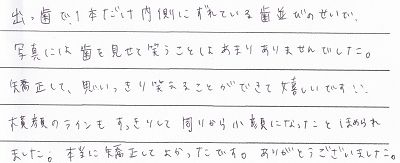 出っ歯で、1本だけ内側にずれている歯並びのせいで、
写真には歯を見せて笑うことはあまりありませんでした。
矯正して、思いっきり笑えることができて嬉しいです!!
横顔のラインもすっきりして周りから小顔になったとほめられ
ました。本当に矯正してよかったです。ありがとうございました。